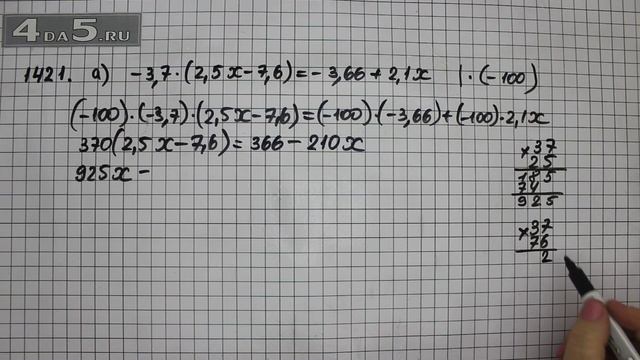 4DA5.RU
1421. а) -3,7·(2,5x-7,6)=-3,66+2,1x |·(-100)
(-100)·(-3,7)·(2,5x-7,6)=(-100)·(-3,66)+(-100)·2,1x
370(2,5x-7,6)=366-210x
925x-
×37
25
185
74
925
×37
76
2